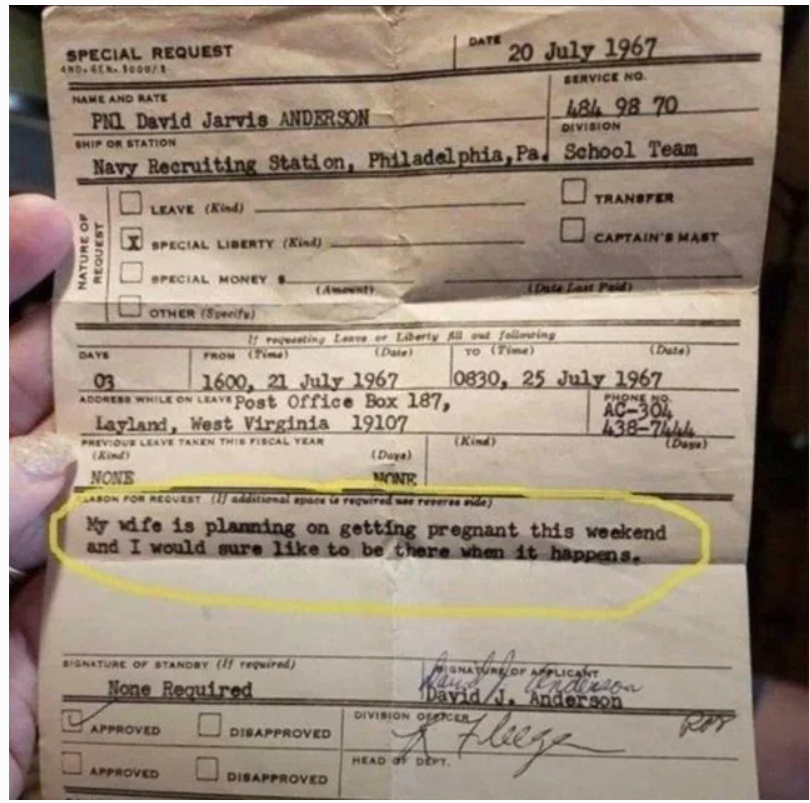 SPECIAL REQUEST
DATE 20 July 1967
SERVICE NO.
NAME AND RATE
PN1 David Jarvis ANDERSON
484 98 70
SHIP OR STATION
DIVISION
Navy Recruiting Station, Philadelphia, Pa. School Team
NATURE OF REQUEST
LEAVE (Kind)
TRANSFER
X SPECIAL LIBERTY (Kind)
CAPTAIN'S MAST
SPECIAL MONEY $
(Amount) (Date Last Paid)
OTHER (Specify)
If requesting Leave or Liberty fill out following
DAYS FROM (Time) (Date) TO (Time) (Date)
03 1600, 21 July 1967 0830, 25 July 1967
ADDRESS WHILE ON LEAVE Post Office Box 187,
PHONE NO.
AC-304
Layland, West Virginia 19107
438-7444
PREVIOUS LEAVE TAKEN THIS FISCAL YEAR
(Kind) (Days) (Kind) (Days)
NONE NONE
REASON FOR REQUEST (If additional space is required use reverse side)
My wife is planning on getting pregnant this weekend
and I would sure like to be there when it happens.
SIGNATURE OF STANDBY (If required)
SIGNATURE OF APPLICANT
David J. Anderson
None Required
David J. Anderson
APPROVED DISAPPROVED
DIVISION OFFICER
APPROVED DISAPPROVED
HEAD OF DEPT.